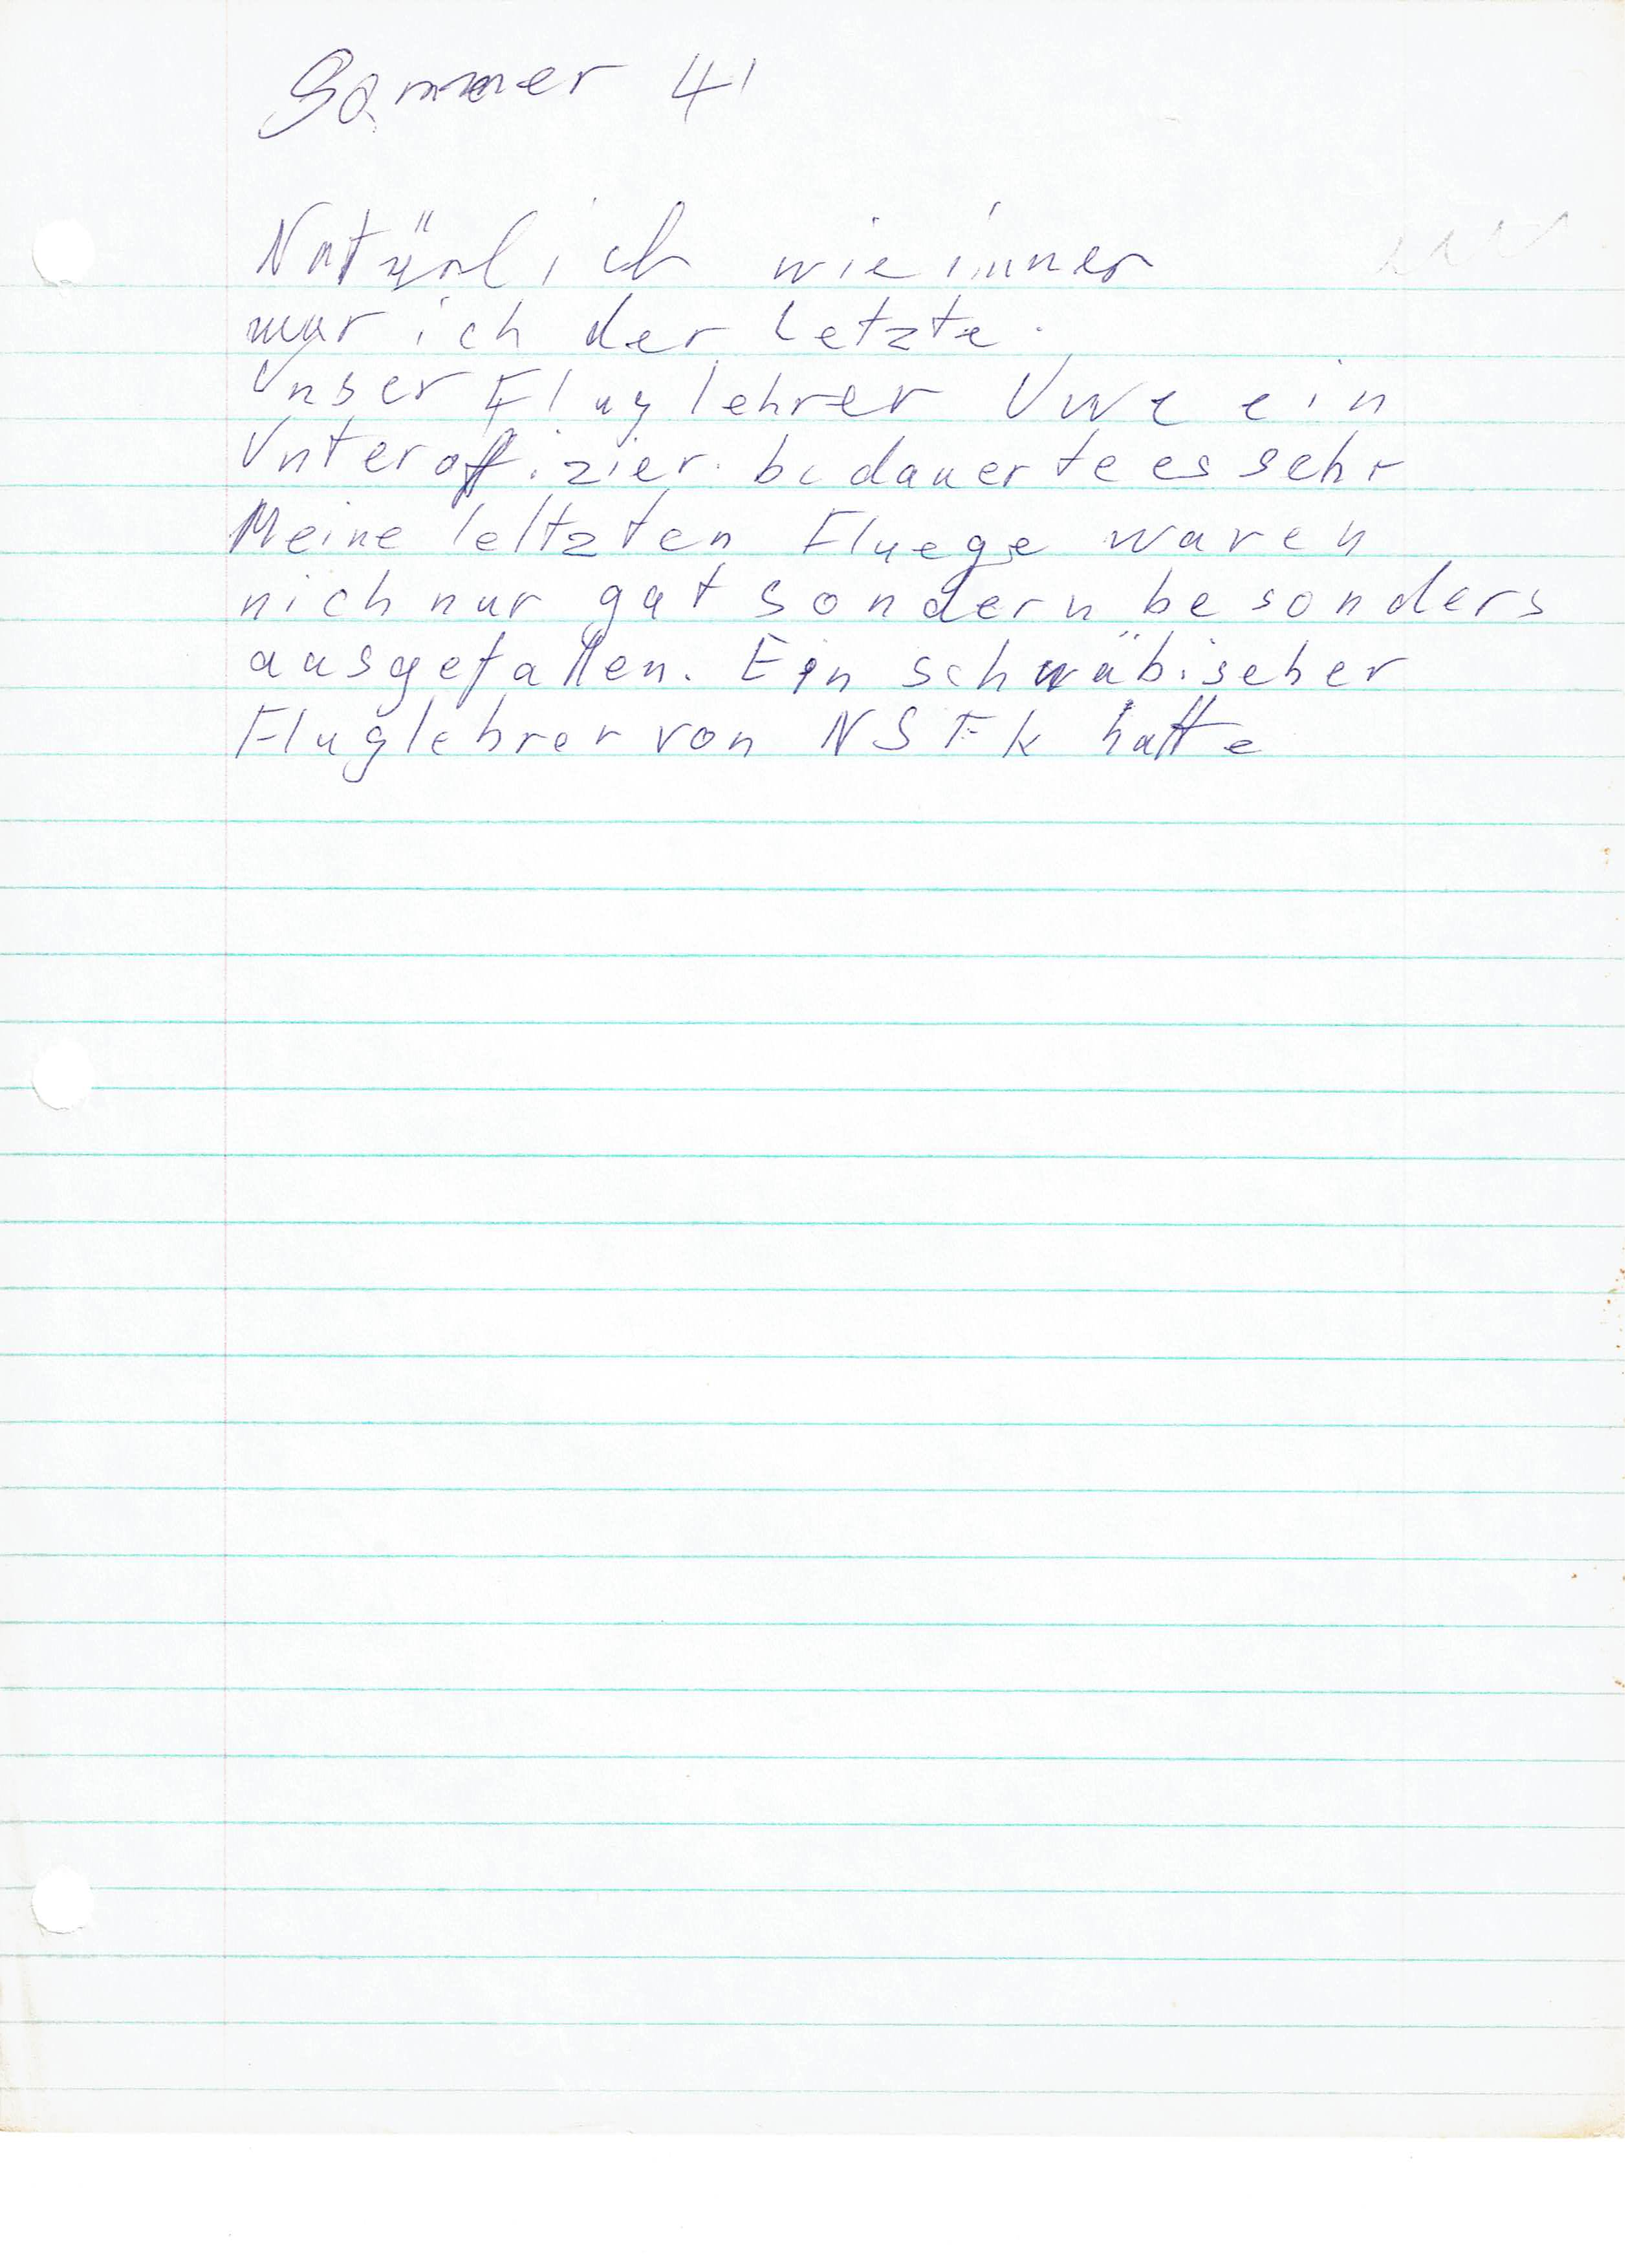 Sommer 41
Natürlich wie immer
war ich der Letzte.
Unser Fluglehrer Uwe ein
Unteroffizier bedauerte es sehr
Meine leltzten Fluege waren
nich nur gut sondern besonders
ausgefallen. Ein schwäbischer
Fluglehrer von NSFK hatte